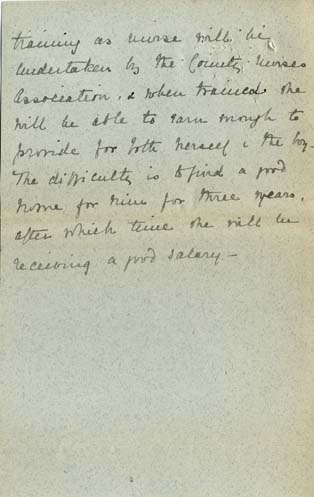 training as nurse will be
undertaken by the County Nurses
Association, & when trained she
will be able to earn enough to
provide for both herself & the boy.
The difficulty is to find a good
home for him for three years,
after which time she will be
receiving a good salary –